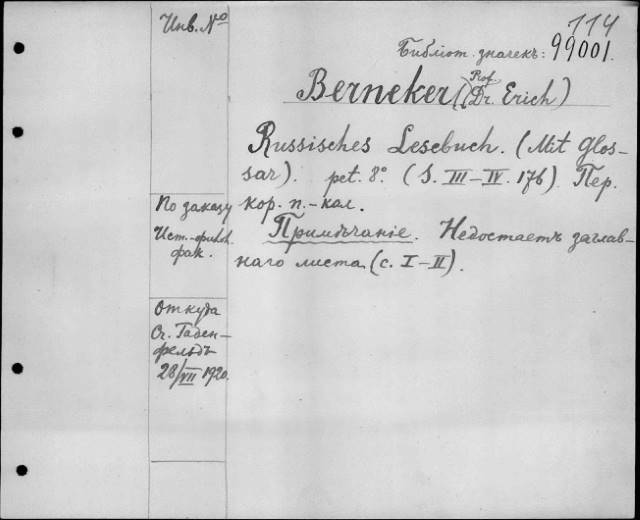 Инв. №
114
Библіот. значекъ: 99001.
Berneker (Prof. Dr. Erich)
Russisches Lesebuch. (Mit Glos-
sar). pet. 8°. (S. III-IV. 176). Пер.
кор. п.-кал.
Примѣчаніе. Недостаетъ заглав-
наго листа (с. I-II).
По заказу
Ист.-филол.
фак.
Откуда
Сг. Гаден-
фельдъ
28/VII 1920.